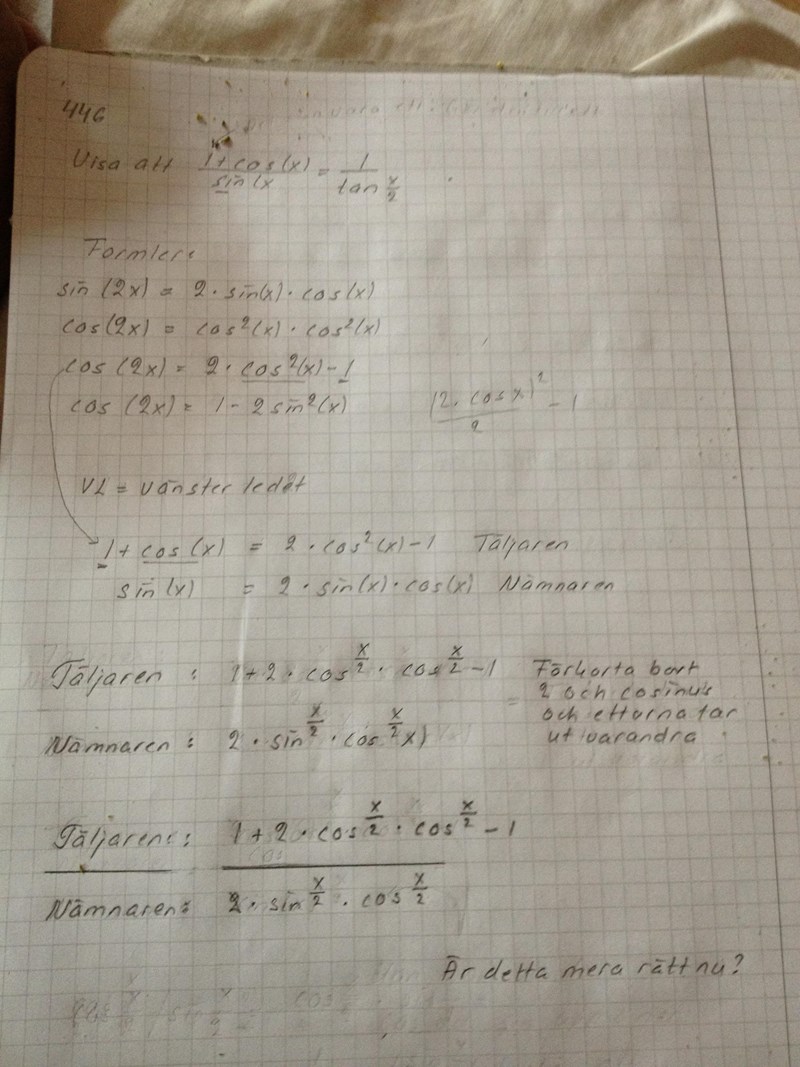 446
Visa att (1+cos(x))/(sin(x) = 1/(tan x/2)
Formler:
sin (2x) = 2 · sin(x) · cos(x)
cos(2x) = cos²(x) · cos²(x)
cos (2x) = 2 · cos²(x) - 1
cos (2x) = 1 - 2 sin²(x)
(2 · cos x)²/2 - 1
VL = vänster ledet
1 + cos(x) = 2 · cos²(x) - 1 Täljaren
sin(x) = 2 · sin(x) · cos(x) Nämnaren
Täljaren : 1 + 2 · cos^(x/2) · cos^(x/2) - 1
Nämnaren : 2 · sin^(x/2) · cos^(x/2) x)
= Förkorta bort
2 och cosinus
och ettorna tar
ut varandra
Täljaren : 1 + 2 · cos^(x/2) · cos^(x/2) - 1
Nämnaren : 2 · sin^(x/2) · cos^(x/2)
Är detta mera rätt nu?